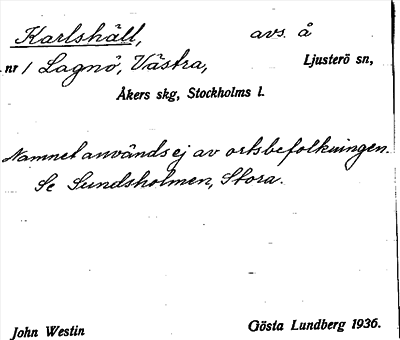 Karlshäll, avs. å
nr 1 Lagnö, Västra, Ljusterö sn,
Åkers skg, Stockholms l.
Namnet användes ej av ortsbefolkningen.
Se Sundsholmen, Stora.
John Westin Gösta Lundberg 1936.